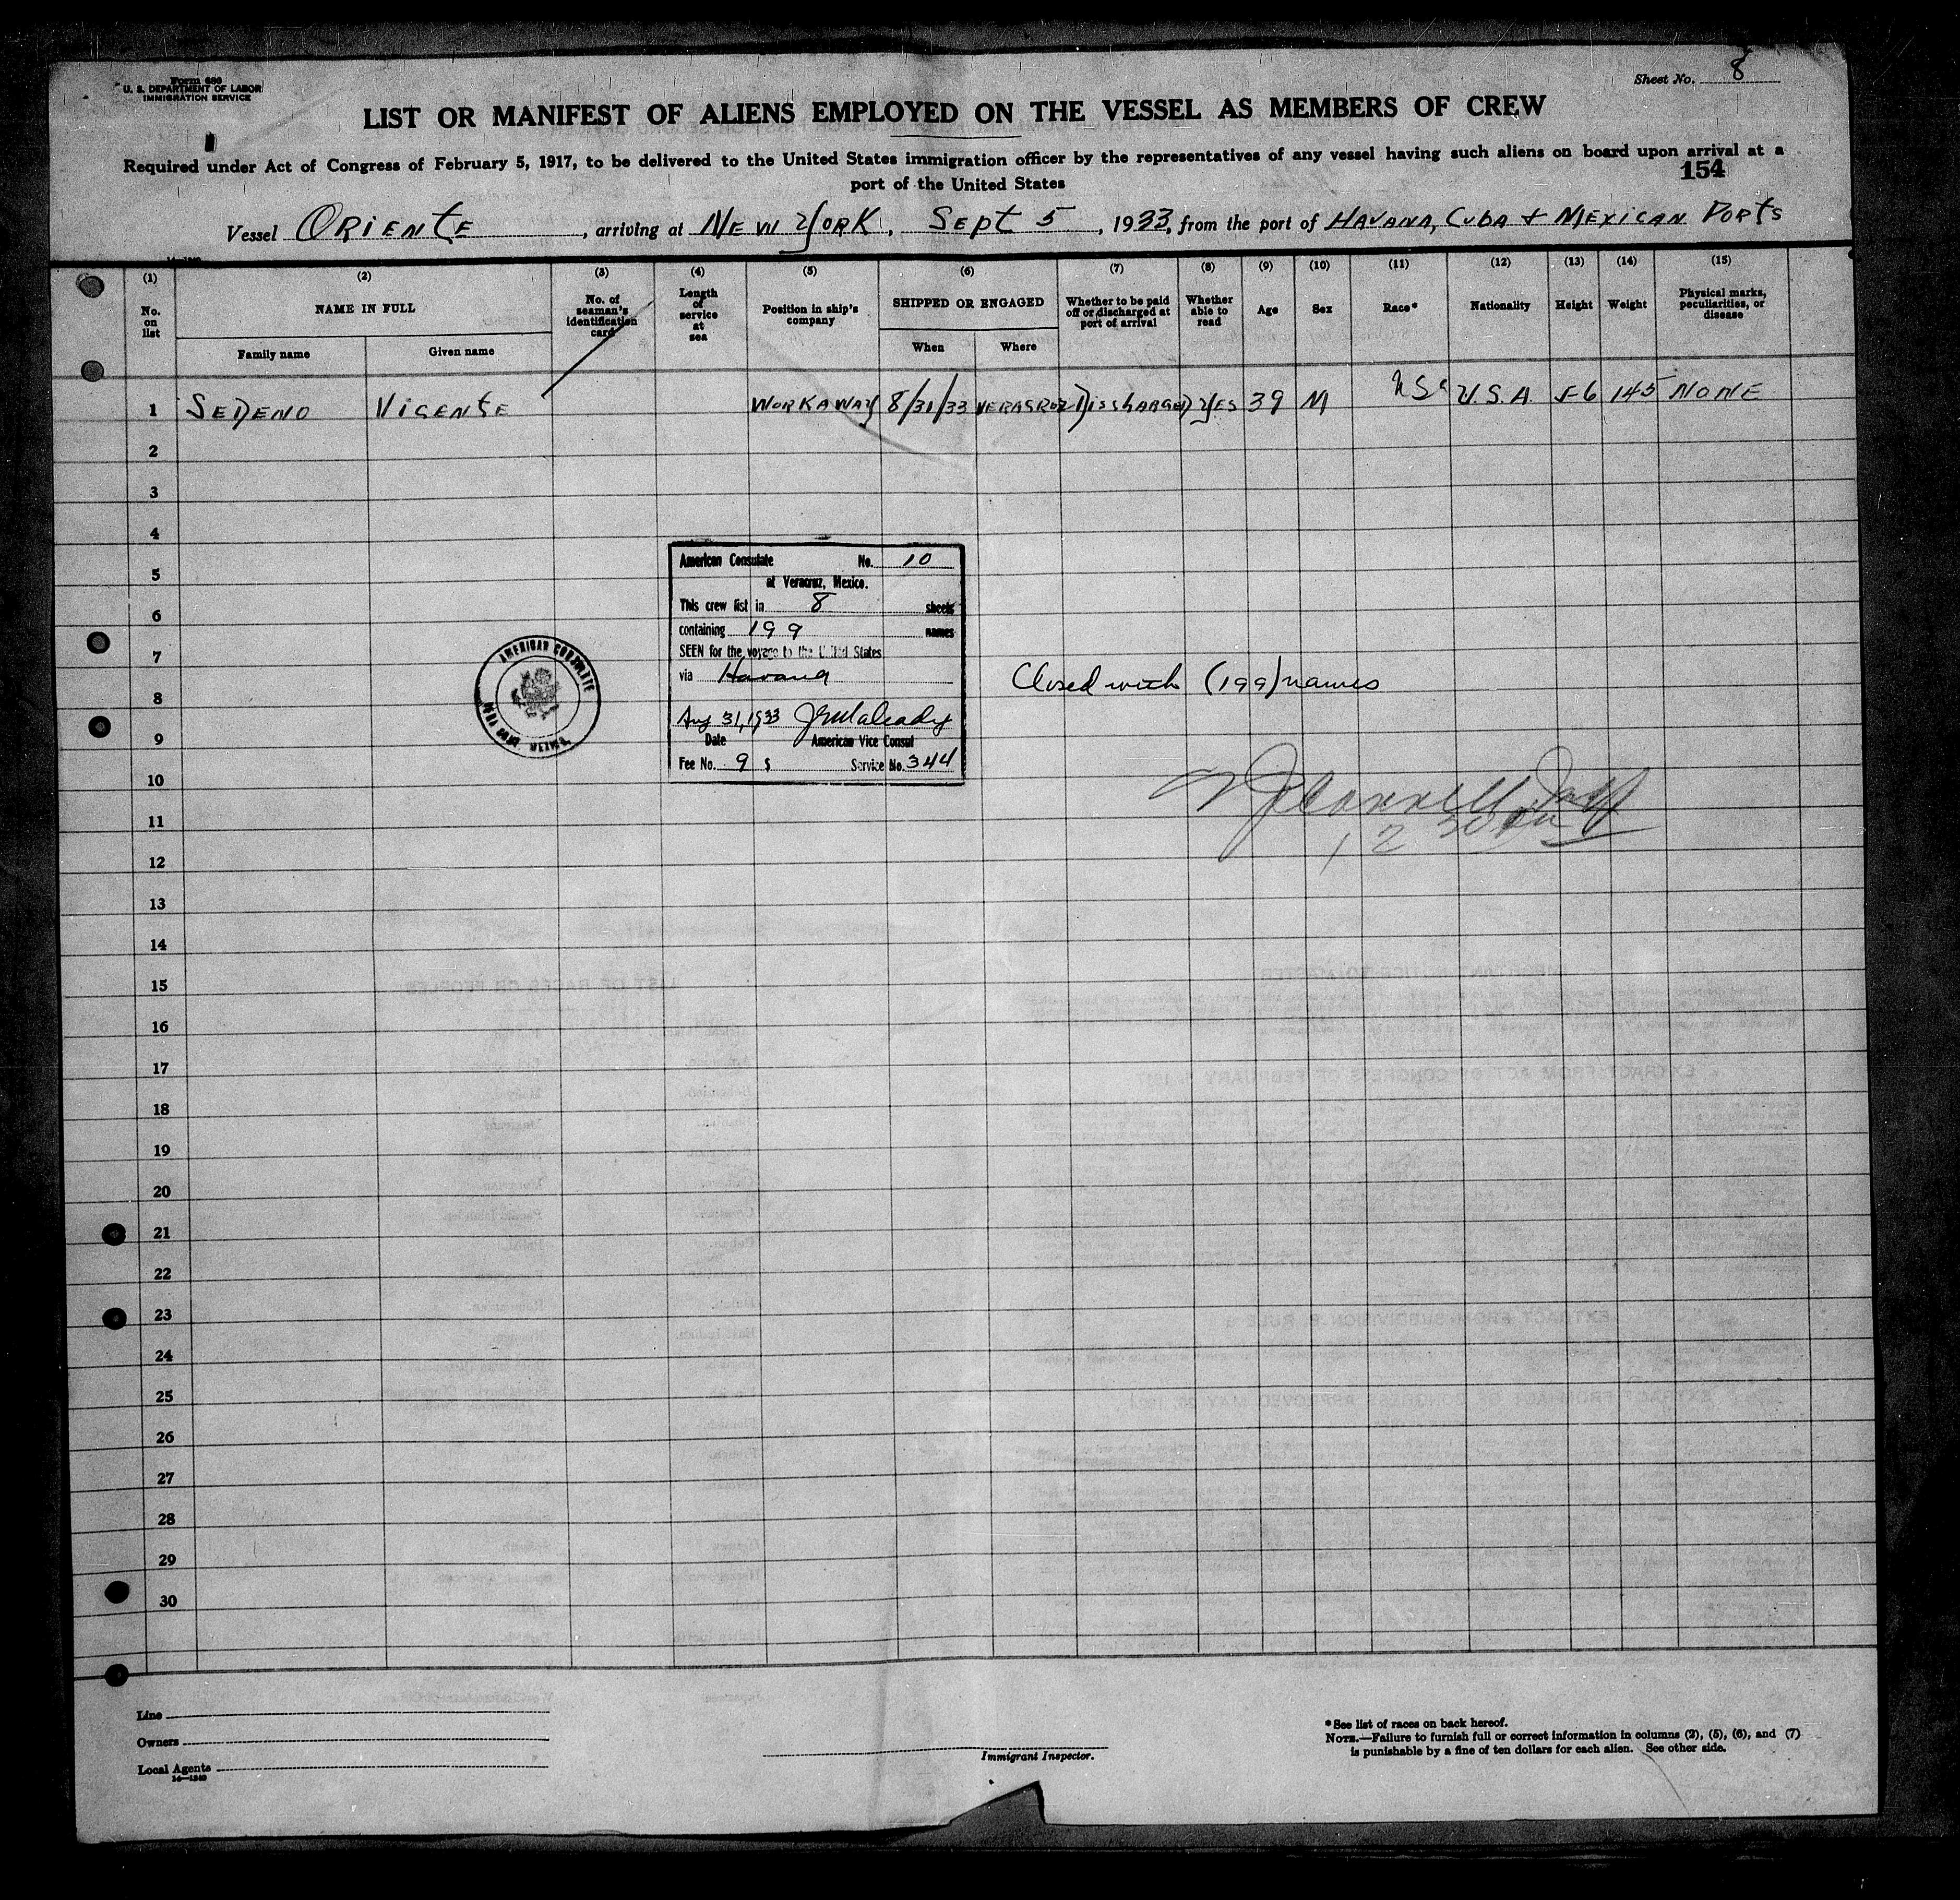 Form 680
U. S. DEPARTMENT OF LABOR
IMMIGRATION SERVICE
Sheet No. 8
LIST OR MANIFEST OF ALIENS EMPLOYED ON THE VESSEL AS MEMBERS OF CREW
Required under Act of Congress of February 5, 1917, to be delivered to the United States immigration officer by the representatives of any vessel having such aliens on board upon arrival at a
port of the United States
154
Vessel ORIENTE, arriving at NEW YORK, SEPT 5, 1933, from the port of HAVANA, CUBA & MEXICAN PORTS
(1) (2) (3) (4) (5) (6) (7) (8) (9) (10) (11) (12) (13) (14) (15)
No. on list
NAME IN FULL
Family name
Given name
No. of seaman's identification card
Length of service at sea
Position in ship's company
SHIPPED OR ENGAGED
When
Where
Whether to be paid off or discharged at port of arrival
Whether able to read
Age
Sex
Race*
Nationality
Height
Weight
Physical marks, peculiarities, or disease
1 SEDENO VICENTE WORKAWAY 8/31/33 VERASRUZ DISSHARGED YES 39 M U.S.A. 5-6 145 NONE
2
3
4
5
6
7
8
9
10
11
12
13
14
15
16
17
18
19
20
21
22
23
24
25
26
27
28
29
30
American Consulate No. 10
at Veracruz, Mexico.
This crew list in 8 sheets
containing 199 names
SEEN for the voyage to the United States
via Havana
Aug 31, 1933
Date American Vice Consul
Fee No. 9 $ Service No. 344
AMERICAN CONSULATE
VERA CRUZ, MEXICO.
Closed with (199) names
12 30
Line
Owners
Local Agents
14—1240
Immigrant Inspector.
*See list of races on back hereof.
NOTE.—Failure to furnish full or correct information in columns (2), (5), (6), and (7)
is punishable by a fine of ten dollars for each alien. See other side.